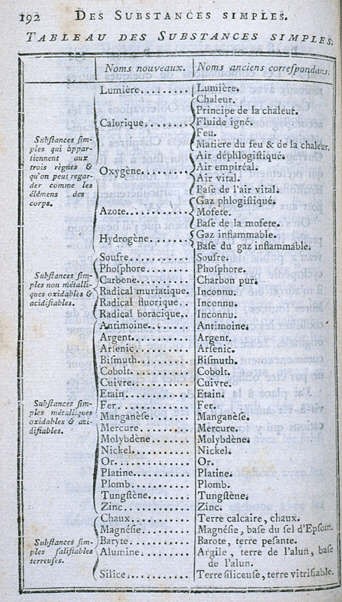 192 DES SUBSTANCES SIMPLES.
TABLEAU DES SUBSTANCES SIMPLES.
Noms nouveaux. Noms anciens correspondans.
Substances sim-
ples qui appar-
tiennent aux
trois règnes &
qu'on peut regar-
der comme les
élémens des
corps.
Lumière......... Lumière.
Calorique........
Chaleur.
Principe de la chaleur.
Fluide igné.
Feu.
Matière du feu & de la chaleur.
Oxygène.........
Air déphlogistiqué.
Air empiréal.
Air vital.
Base de l'air vital.
Azote...........
Gaz phlogistiqué.
Mofete.
Base de la mofete.
Hydrogène.......
Gaz inflammable.
Base du gaz inflammable.
Substances sim-
ples non métalli-
ques oxidables &
acidifiables.
Soufre........... Soufre.
Phosphore........ Phosphore.
Carbone......... Charbon pur.
Radical muriatique. Inconnu.
Radical fluorique.. Inconnu.
Radical boracique.. Inconnu.
Substances sim-
ples métalliques
oxidables & aci-
difiables.
Antimoine........ Antimoine.
Argent........... Argent.
Arsenic.......... Arsenic.
Bismuth.......... Bismuth.
Cobolt........... Cobolt.
Cuivre........... Cuivre.
Etain............ Etain.
Fer.............. Fer.
Manganèse....... Manganèse.
Mercure......... Mercure.
Molybdène....... Molybdène.
Nickel........... Nickel.
Or............... Or.
Platine........... Platine.
Plomb........... Plomb.
Tungstène........ Tungstène.
Zinc............. Zinc.
Substances sim-
ples salifiables
terreuses.
Chaux........... Terre calcaire, chaux.
Magnésie........ Magnésie, base du sel d'Epsom.
Baryte........... Barote, terre pesante.
Alumine......... Argile, terre de l'alun, base
de l'alun.
Silice............ Terre siliceuse, terre vitrifiable.